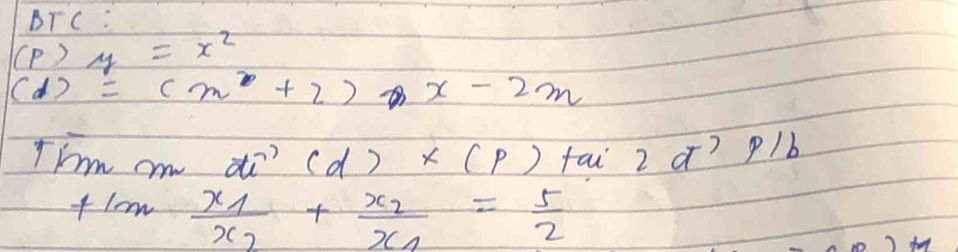 BTC :
(P) y = x²
(d) = (m + 2) x - 2m
Tìm m để (d) x (P) tại 2 đ' P/b
t/m x1/x2 + x2/x1 = 5/2